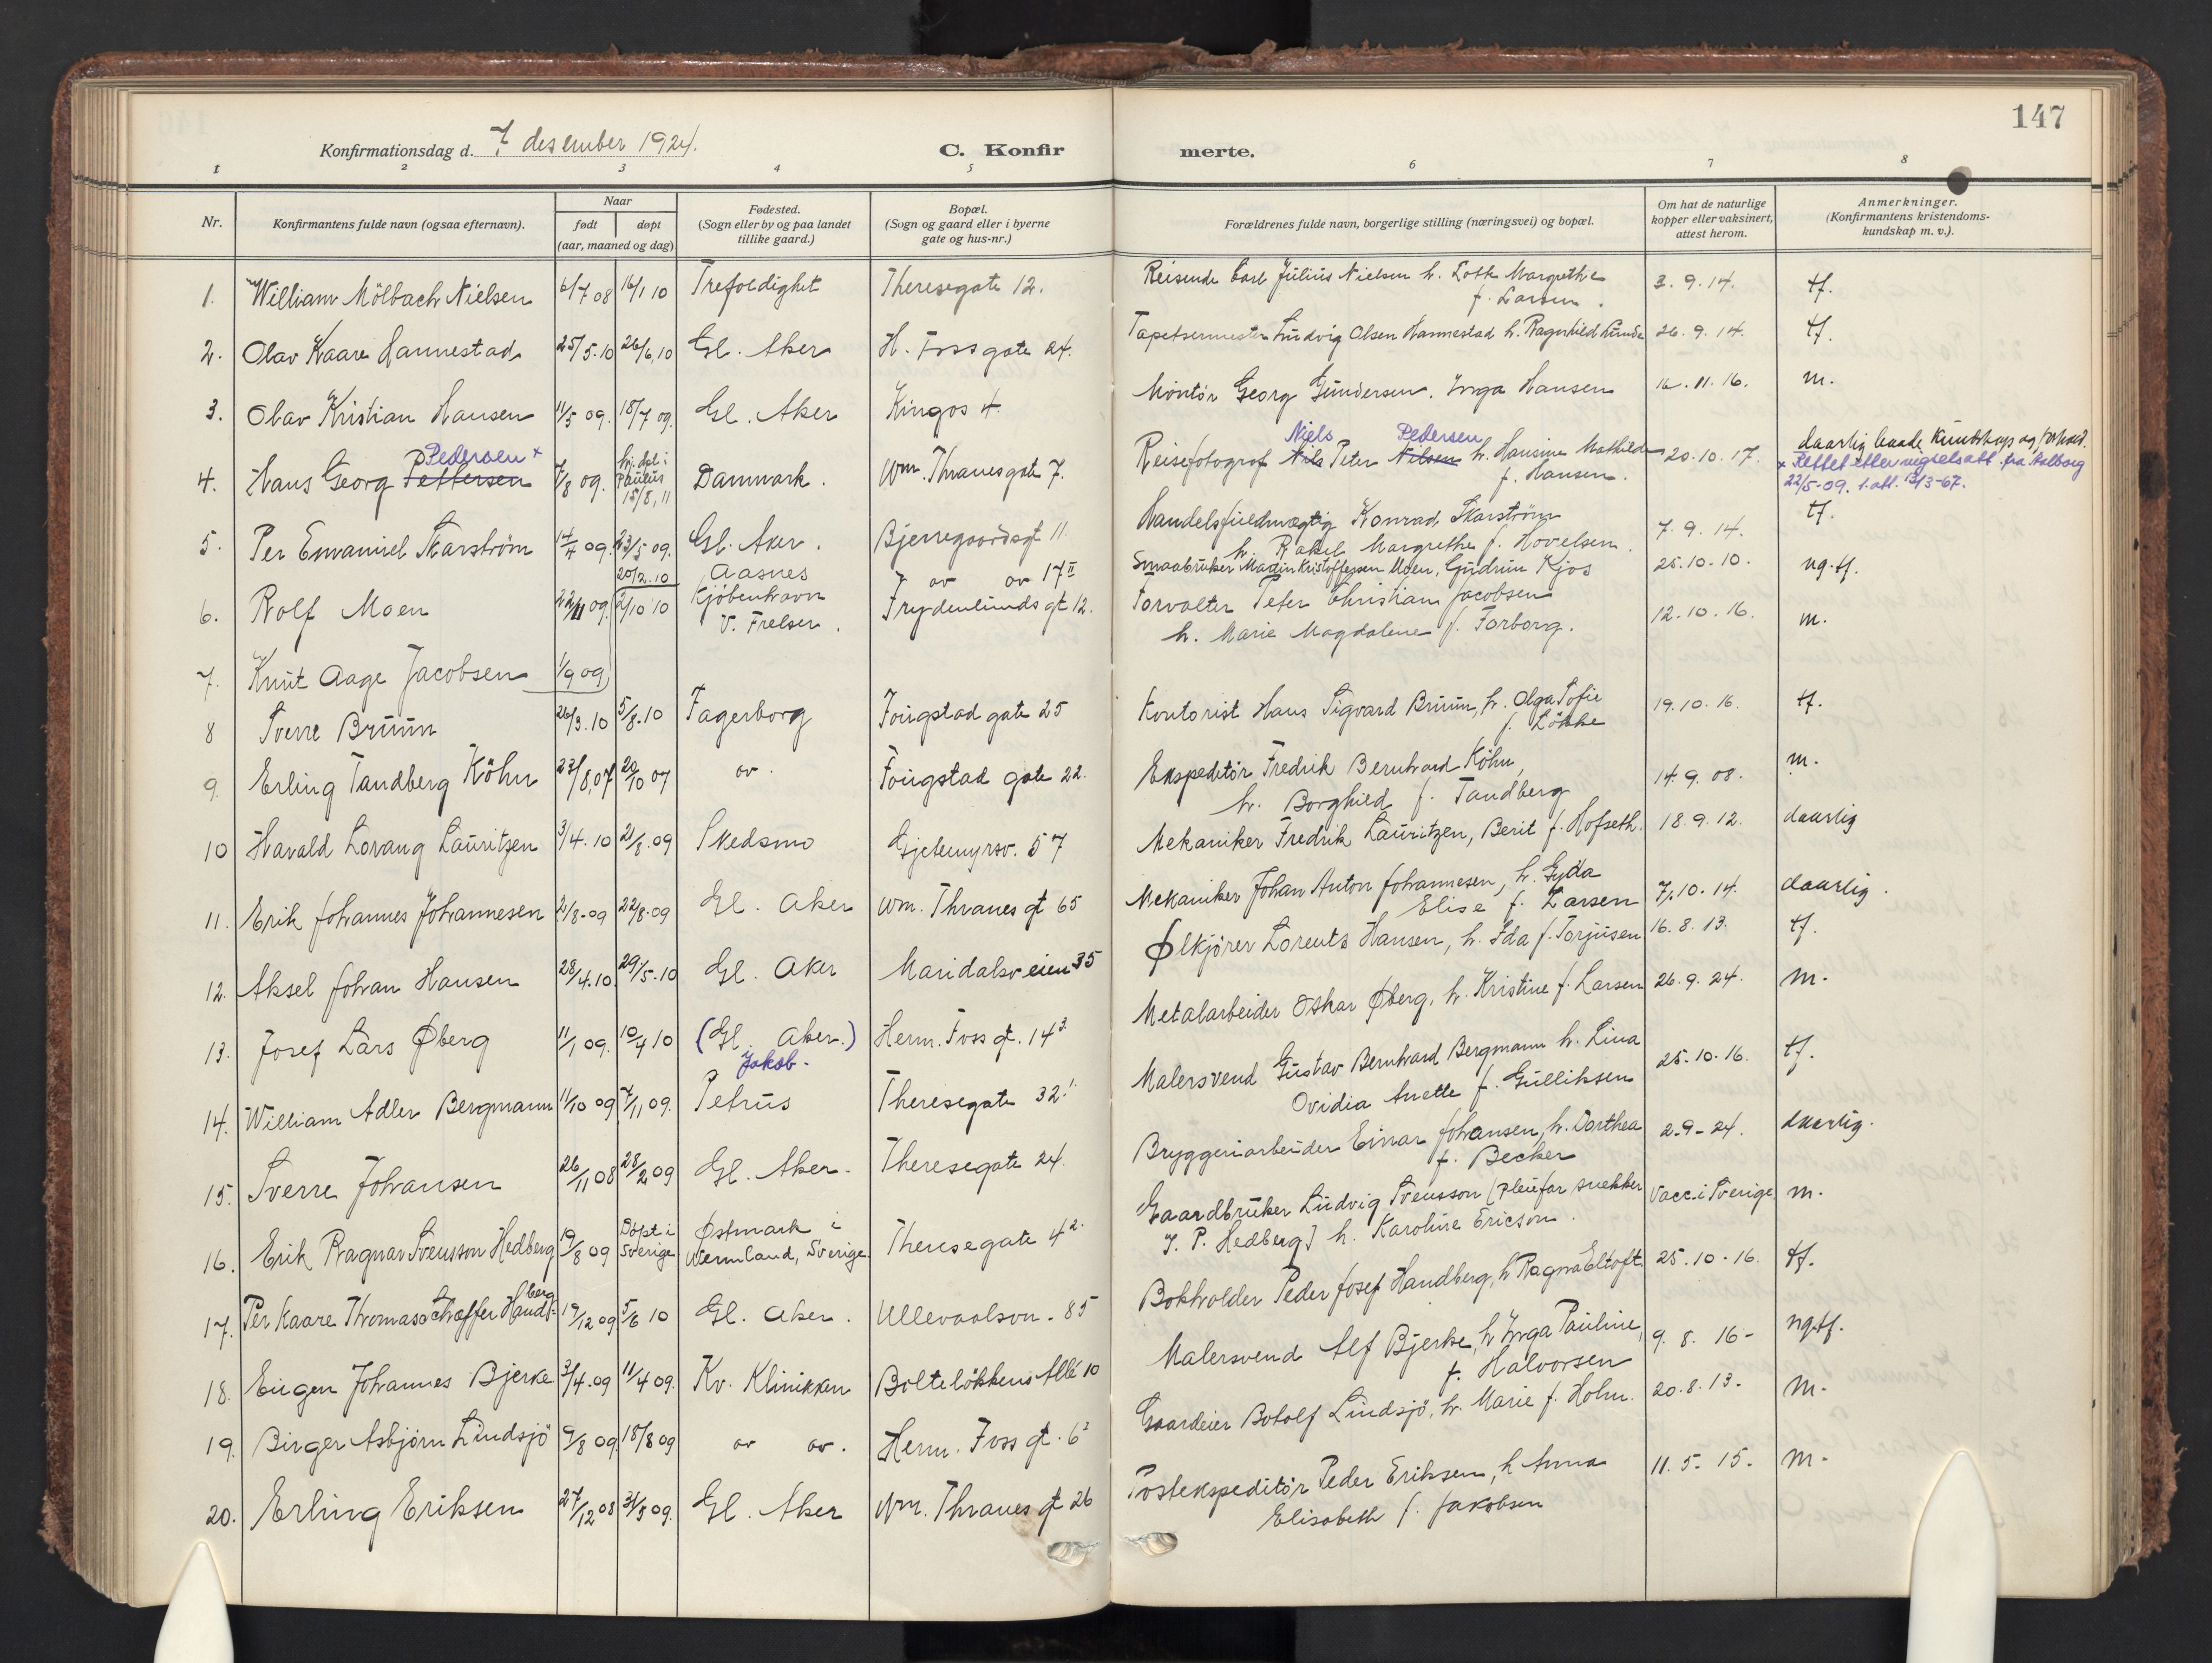 147
Konfirmationsdag d. 7 desember 1924.
C. Konfirmerte.
1 2 3 4 5 6 7 8
Nr.
Konfirmantens fulde navn (ogsaa efternavn).
Naar
født døpt
(aar, maaned og dag)
Fødested.
(Sogn eller by og paa landet
tillike gaard.)
Bopæl.
(Sogn og gaard eller i byerne
gate og hus-nr.)
Forældrenes fulde navn, borgerlige stilling (næringsvei) og bopæl.
Om hat de naturlige
kopper eller vaksinert,
attest herom.
Anmerkninger.
(Konfirmantens kristendoms-
kundskap m. v.).
1. William Mölbach Nielsen 6/7 08 16/1 10 Trefoldighet Theresegate 12. Reisende Carl Julius Nielsen h. Lotte Margrethe
f. Larsen. 3. 9. 14. tf.
2. Olav Kaare Hannestad 25/5.10 26/6,10 Gl. Aker H. Fossgate 24. Tapetsermester Ludvig Olsen Hannestad h. Ragnhild Lunde 26. 9. 14. tf.
3. Olav Kristian Hansen 11/5 09. 18/7 09. Gl. Aker Kingos 4. Montör Georg Gundersen. Inga Hansen 16. 11. 16. m.
Pedersen x
4. Hans Georg Pettersen 7/8 09. hj. dpt i
Paulus
15/8, 11 Danmark. Wm. Thranesgate 7.
Niels Pedersen
Reisefotograf Nils Peter Nilsen h. Hansine Mathilde
f. Hansen. 20. 10. 17. daarlig baade kundskap og forhold.
x Rettet etter vigselsatt. fra Aalborg
22/5-09. 1. att. 13/3-67.
5. Per Emanuel Skarström 14/4 09. 23/5 09. Gl. Aker. Bjerregaardsgt 11. Handelsfuldmægtig Konrad Skarström
h. Rakel Margrethe f. Hovelsen. 7. 9. 14. tf.
20/2.10 Aasnes av av 17 II Smaabruker Martin Kristoffersen Moen, Gudrun Kjos 25. 10. 10. ng. tf.
6. Rolf Moen 22/11 09. 2/10 10 Kjöbenhavn
V. Frelser. Frydenlunds gt 12. Forvalter Peter Christian Jacobsen
h. Marie Magdalene f. Farborg. 12. 10. 16. m.
7. Knut Aage Jacobsen 1/9 09
8 Sverre Bruun 26/3.10 5/8.10 Fagerborg Fougstad gate 25 Kontorist Hans Sigvard Bruun, h. Olga Sofie
f. Lökke 19. 10. 16. tf.
9. Erling Tandberg Köhn 23/8,07 20/10 07 av. Fougstad gate 22. Ekspeditör Fredrik Bernhard Köhn,
h. Borghild f. Tandberg 14. 9. 08. m.
10 Havald Lovang Lauritzen 3/4. 10 21/8.09 Skedsmo Gjetemyrsv. 57 Mekaniker Fredrik Lauritzen, Berit f. Hofseth. 18. 9. 12. daarlig
11. Erik Johannes Johannesen 2/8-09 22/8-09 Gl. Aker Wm. Thranes gt 65 Mekaniker Johan Anton Johannesen, h. Gyda
Elise f. Larsen 7. 10. 14. daarlig.
12. Aksel Johan Hansen 28/4.10 29/5.10 Gl. Aker Maridalsveien 35 Ølkjörer Lorents Hansen, h. Ida f. Torjusen 16. 8. 13. tf.
13. Josef Lars Øberg 11/1 09. 10/4 10 (Gl. Aker.)
Jakob. Herm. Foss gt. 14 3. Metalarbeider Oskar Øberg, h. Kristine f. Larsen 26. 9. 24. m.
14. William Adler Bergmann 11/10 09 7/11 09. Petrus Theresegate 32 1. Malersvend Gustav Bernhard Bergmann h. Lina
Ovidia Anette f. Gulliksen 25. 10. 16. tf.
15. Sverre Johansen 26/11 08 28/2 09 Gl. Aker. Theresegate 24. Bryggeriarbeider Einar Johansen, h. Dorthea
f. Becker 2-9-24. daarlig.
16. Erik Ragnar Svensson Hedberg 19/8 09 Döpt i
Sverige Østmark i
Wermland, Sverige. Theresegate 4 2. Gaardbruker Ludvig Svensson (Pleiefar snekker
J. P. Hedberg) h. Karoline Ericson. Vacc. i Sverige m.
17. Per Kaare Thomas Schæffer Handberg 19/12 09 5/6 10 Gl. Aker. Ullevaalsvn. 85 Bokholder Peder Josef Handberg, h. Ragna Eltoft. 25. 10. 16. tf.
18. Eugen Johannes Bjerke 3/4.09 11/4 09. Kv. Klinikken Bolteløkkens Allé 10 Malersvend Alf Bjerke, h. Inga Pauline,
f. Halvorsen 9. 8. 16- ng. tf.
19. Birger Asbjørn Lindsjö 9/8 09. 18/8 09 av av. Herm. Foss gt. 6 2 Gaardeier Botolf Lindsjö, h. Marie f. Holm. 20. 8. 13. m.
20. Erling Eriksen 27/12 08 31/3 09. Gl. Aker Wm. Thranes gt 26 Postekspeditör Peder Eriksen, h. Anna
Elisabeth f. Jakobsen 11. 5. 15. m.